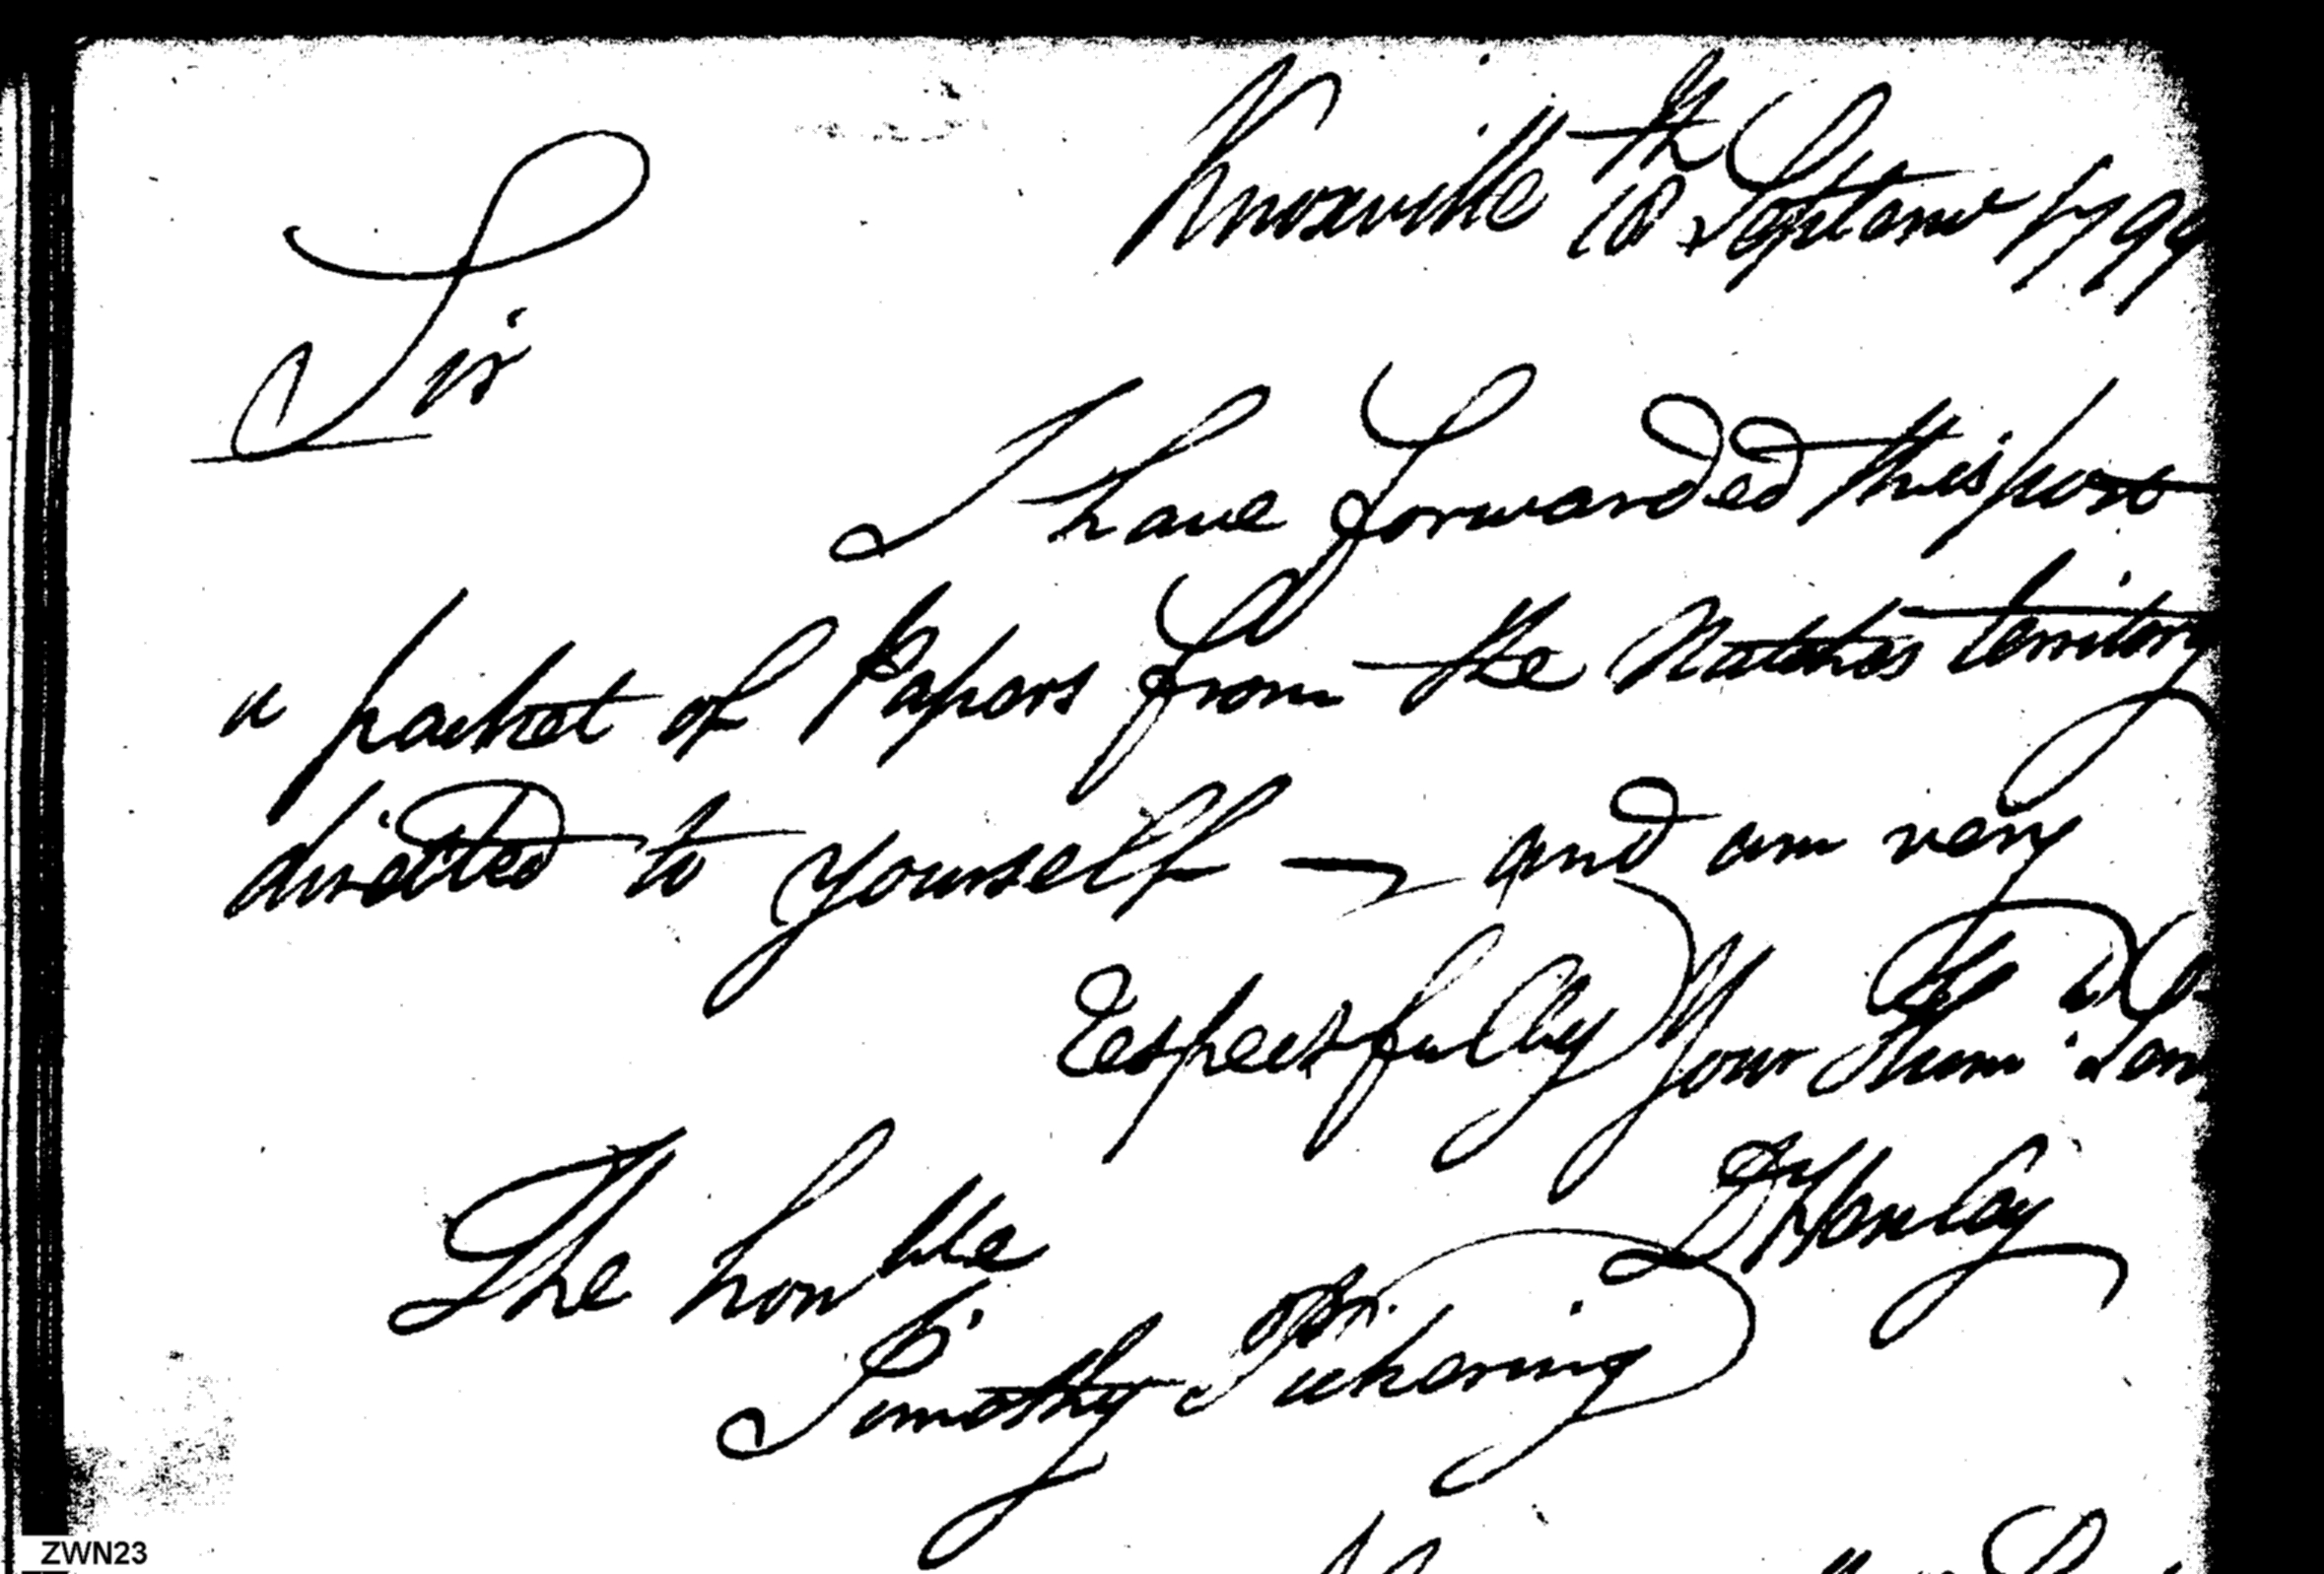 Knoxville 18th Septemr 1799
Sir
I have forwarded this post
a packet of Papers from the Natches territory
directed to yourself — and am very
Respectfully Your Hum
D Henley
The honble
Timothy Pickering
ZWN23